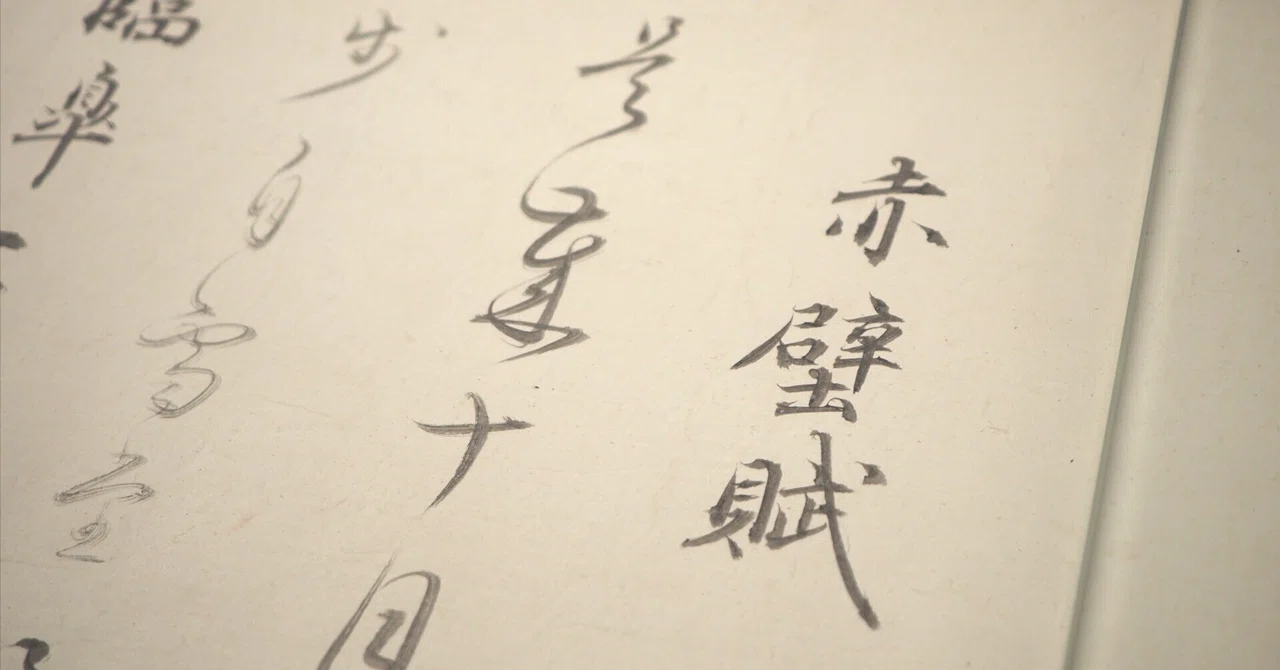 赤壁賦
是歲十月
步自雪堂
臨皐